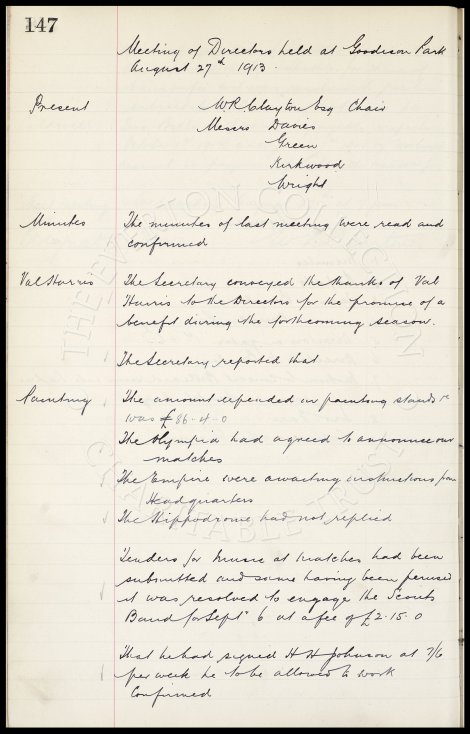 147
Meeting of Directors held at Goodison Park
August 27th 1913.
Present
W R Clayton Esq Chair
Messrs Davies
Green
Kirkwood
Wright
Minutes
The minutes of last meeting were read and
confirmed
Val Harris
The Secretary conveyed the thanks of Val
Harris to the Directors for the promise of a
benefit during the forthcoming season.
The Secretary reported that
Painting
The amount expended in painting stands
was £86-4-0
The Olympia had agreed to announce our
matches
The Empire were awaiting instructions from
Headquarters
The Hippodrome had not replied
Tenders for music at matches had been
submitted and same having been perused
it was resolved to engage the Scouts
Band for Sept 6 at a fee of £2-15-0
That he had signed H H Johnson at 7/6
per week he to be allowed to work
Confirmed
THE EVERTON COLLECTION
CHARITABLE TRUST